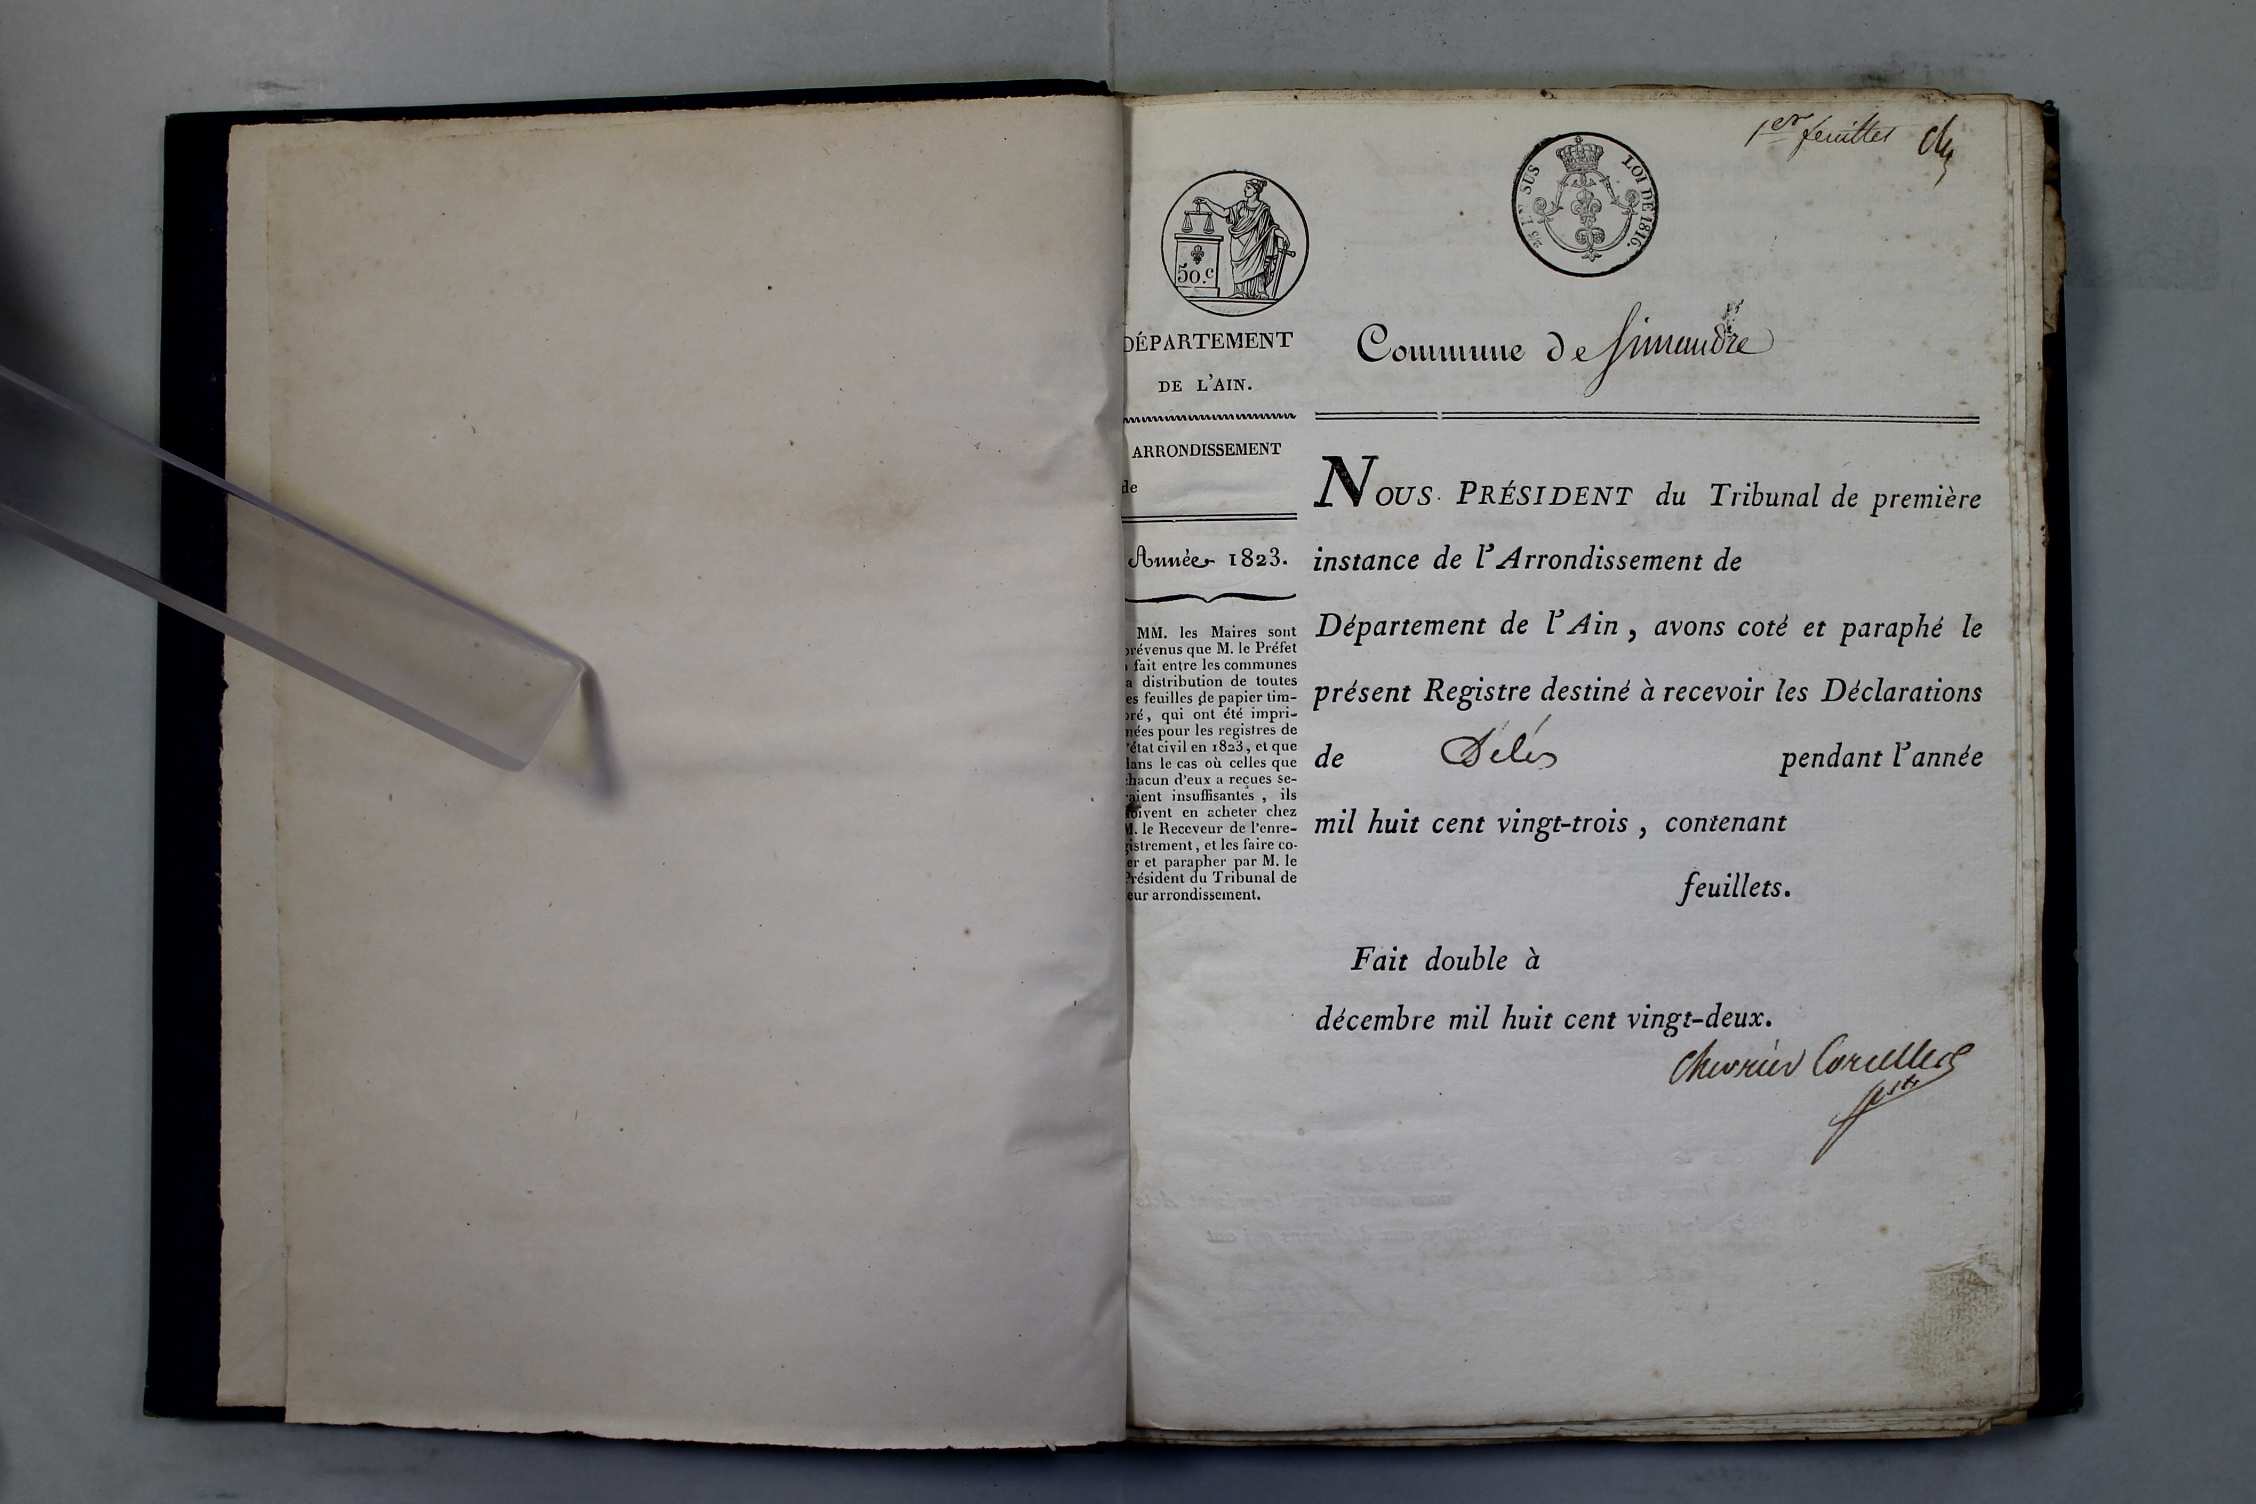 1er feuillet
25 EN SUS
LOI DE 1816.
50.c
DÉPARTEMENT
DE L'AIN.
ARRONDISSEMENT
de
Année 1823.
MM. les Maires sont
prévenus que M. le Préfet
a fait entre les communes
la distribution de toutes
les feuilles de papier tim-
bré, qui ont été impri-
mées pour les registres de
l'état civil en 1823, et que
dans le cas où celles que
chacun d'eux a reçues se-
raient insuffisantes, ils
doivent en acheter chez
M. le Receveur de l'enre-
gistrement, et les faire co-
ter et parapher par M. le
Président du Tribunal de
leur arrondissement.
Commune de Simandre
NOUS PRÉSIDENT du Tribunal de première
instance de l'Arrondissement de
Département de l'Ain, avons coté et paraphé le
présent Registre destiné à recevoir les Déclarations
de Délès pendant l'année
mil huit cent vingt-trois, contenant
feuillets.
Fait double à
décembre mil huit cent vingt-deux.
Chevrier Corcelles